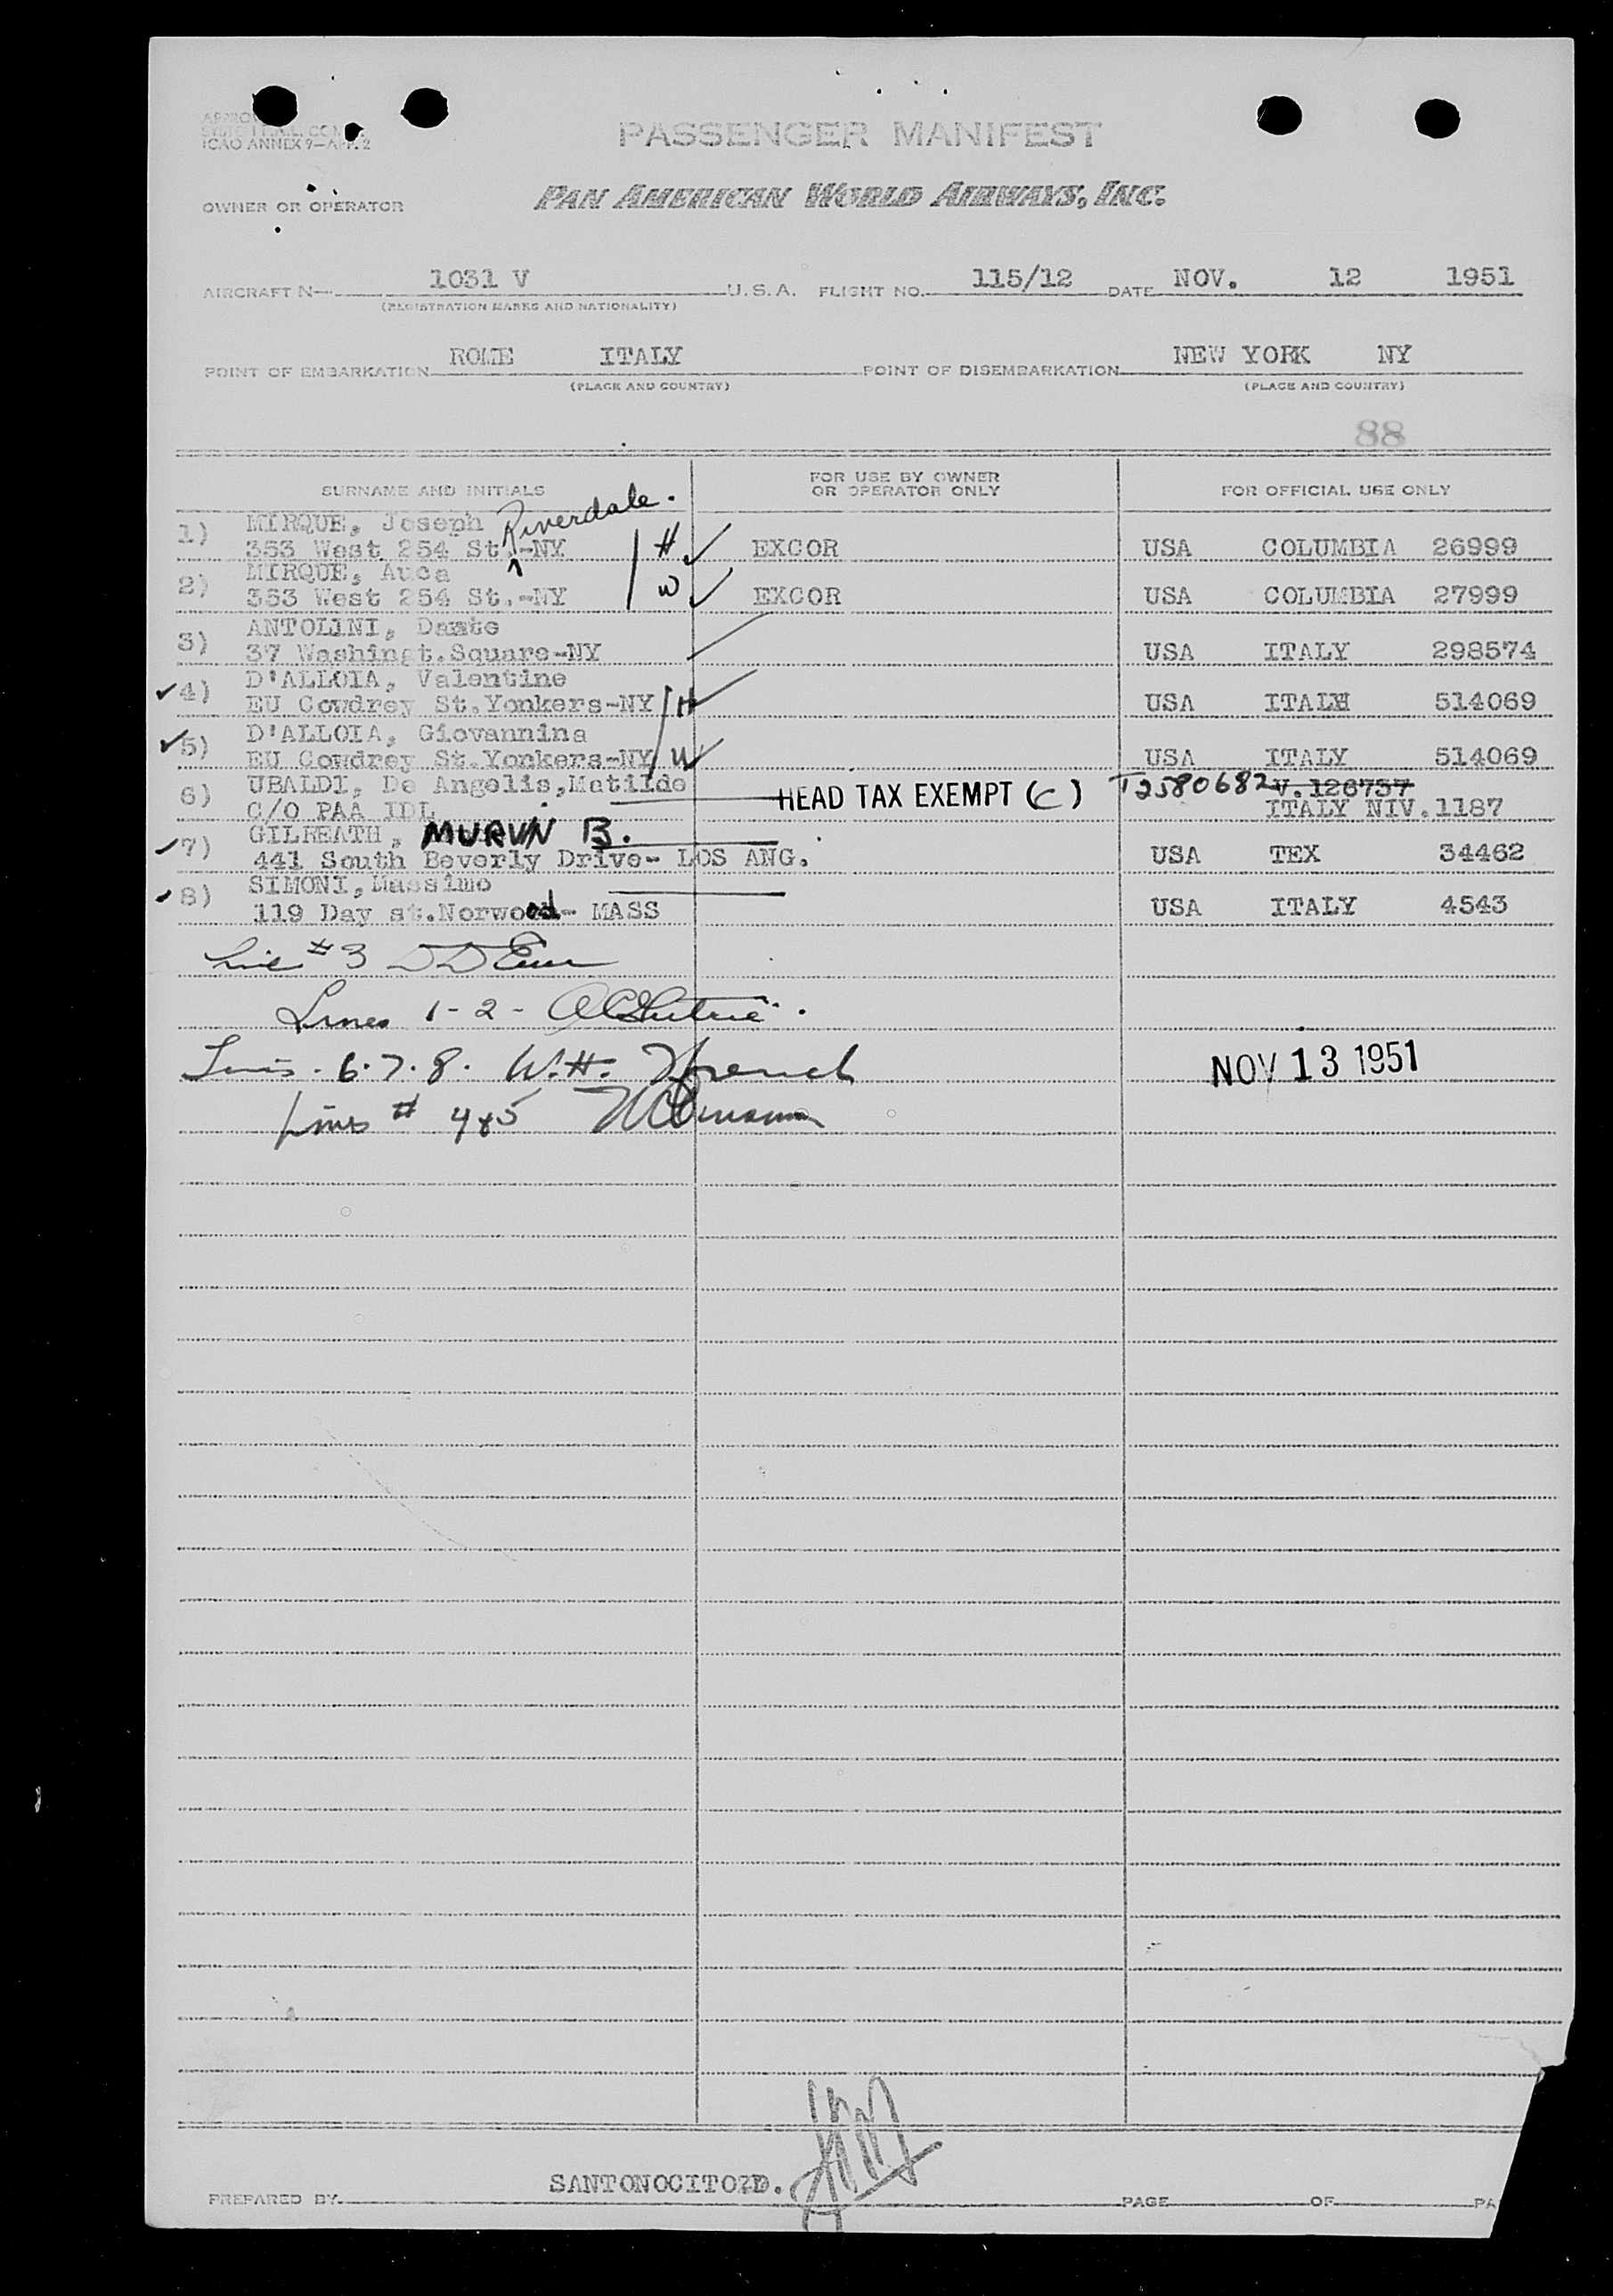 ICAO ANNEX 9—APP. 2
PASSENGER MANIFEST
OWNER OR OPERATOR
PAN AMERICAN WORLD AIRWAYS, INC.
AIRCRAFT N— 1031 V U.S.A. FLIGHT NO. 115/12 DATE NOV. 12 1951
(REGISTRATION MARKS AND NATIONALITY)
POINT OF EMBARKATION ROME ITALY POINT OF DISEMBARKATION NEW YORK NY
(PLACE AND COUNTRY) (PLACE AND COUNTRY)
88
SURNAME AND INITIALS
FOR USE BY OWNER
OR OPERATOR ONLY
FOR OFFICIAL USE ONLY
1) MIRQUE, Joseph Riverdale.
353 West 254 St.-NY H EXCOR USA COLUMBIA 26999
2) MIRQUE, Auca
353 West 254 St.-NY W EXCOR USA COLUMBIA 27999
3) ANTOLINI, Dante
37 Washingt.Square-NY USA ITALY 298574
4) D'ALLOIA, Valentine
EU Cowdrey St.Yonkers-NY H USA ITALH 514069
5) D'ALLOIA, Giovannina
EU Cowdrey St.Yonkers-NY W USA ITALY 514069
6) UBALDI, De Angelis,Matilde HEAD TAX EXEMPT (C) T2580682 V. 126737
C/O PAA IDL ITALY NIV.1187
7) GILREATH, MURVN B.
441 South Beverly Drive- LOS ANG. USA TEX 34462
8) SIMONI, Massimo
119 Day st.Norwood- MASS USA ITALY 4543
Line #3
Lines 1-2-
Lines. 6.7.8. W.H. French
NOV 13 1951
Lines # 4&5
SANTONOCITO?D.
PREPARED BY PAGE OF PA